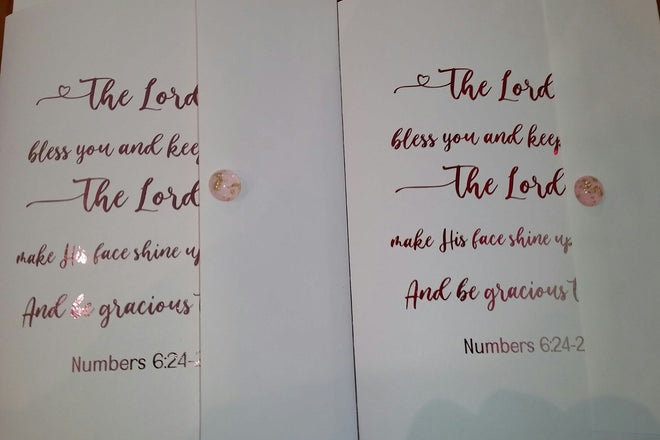 The Lord
bless you and keep
The Lord
make His face shine up
And be gracious t
Numbers 6:24-2
The Lord
bless you and keep
The Lord
make His face shine up
And be gracious t
Numbers 6:24-2